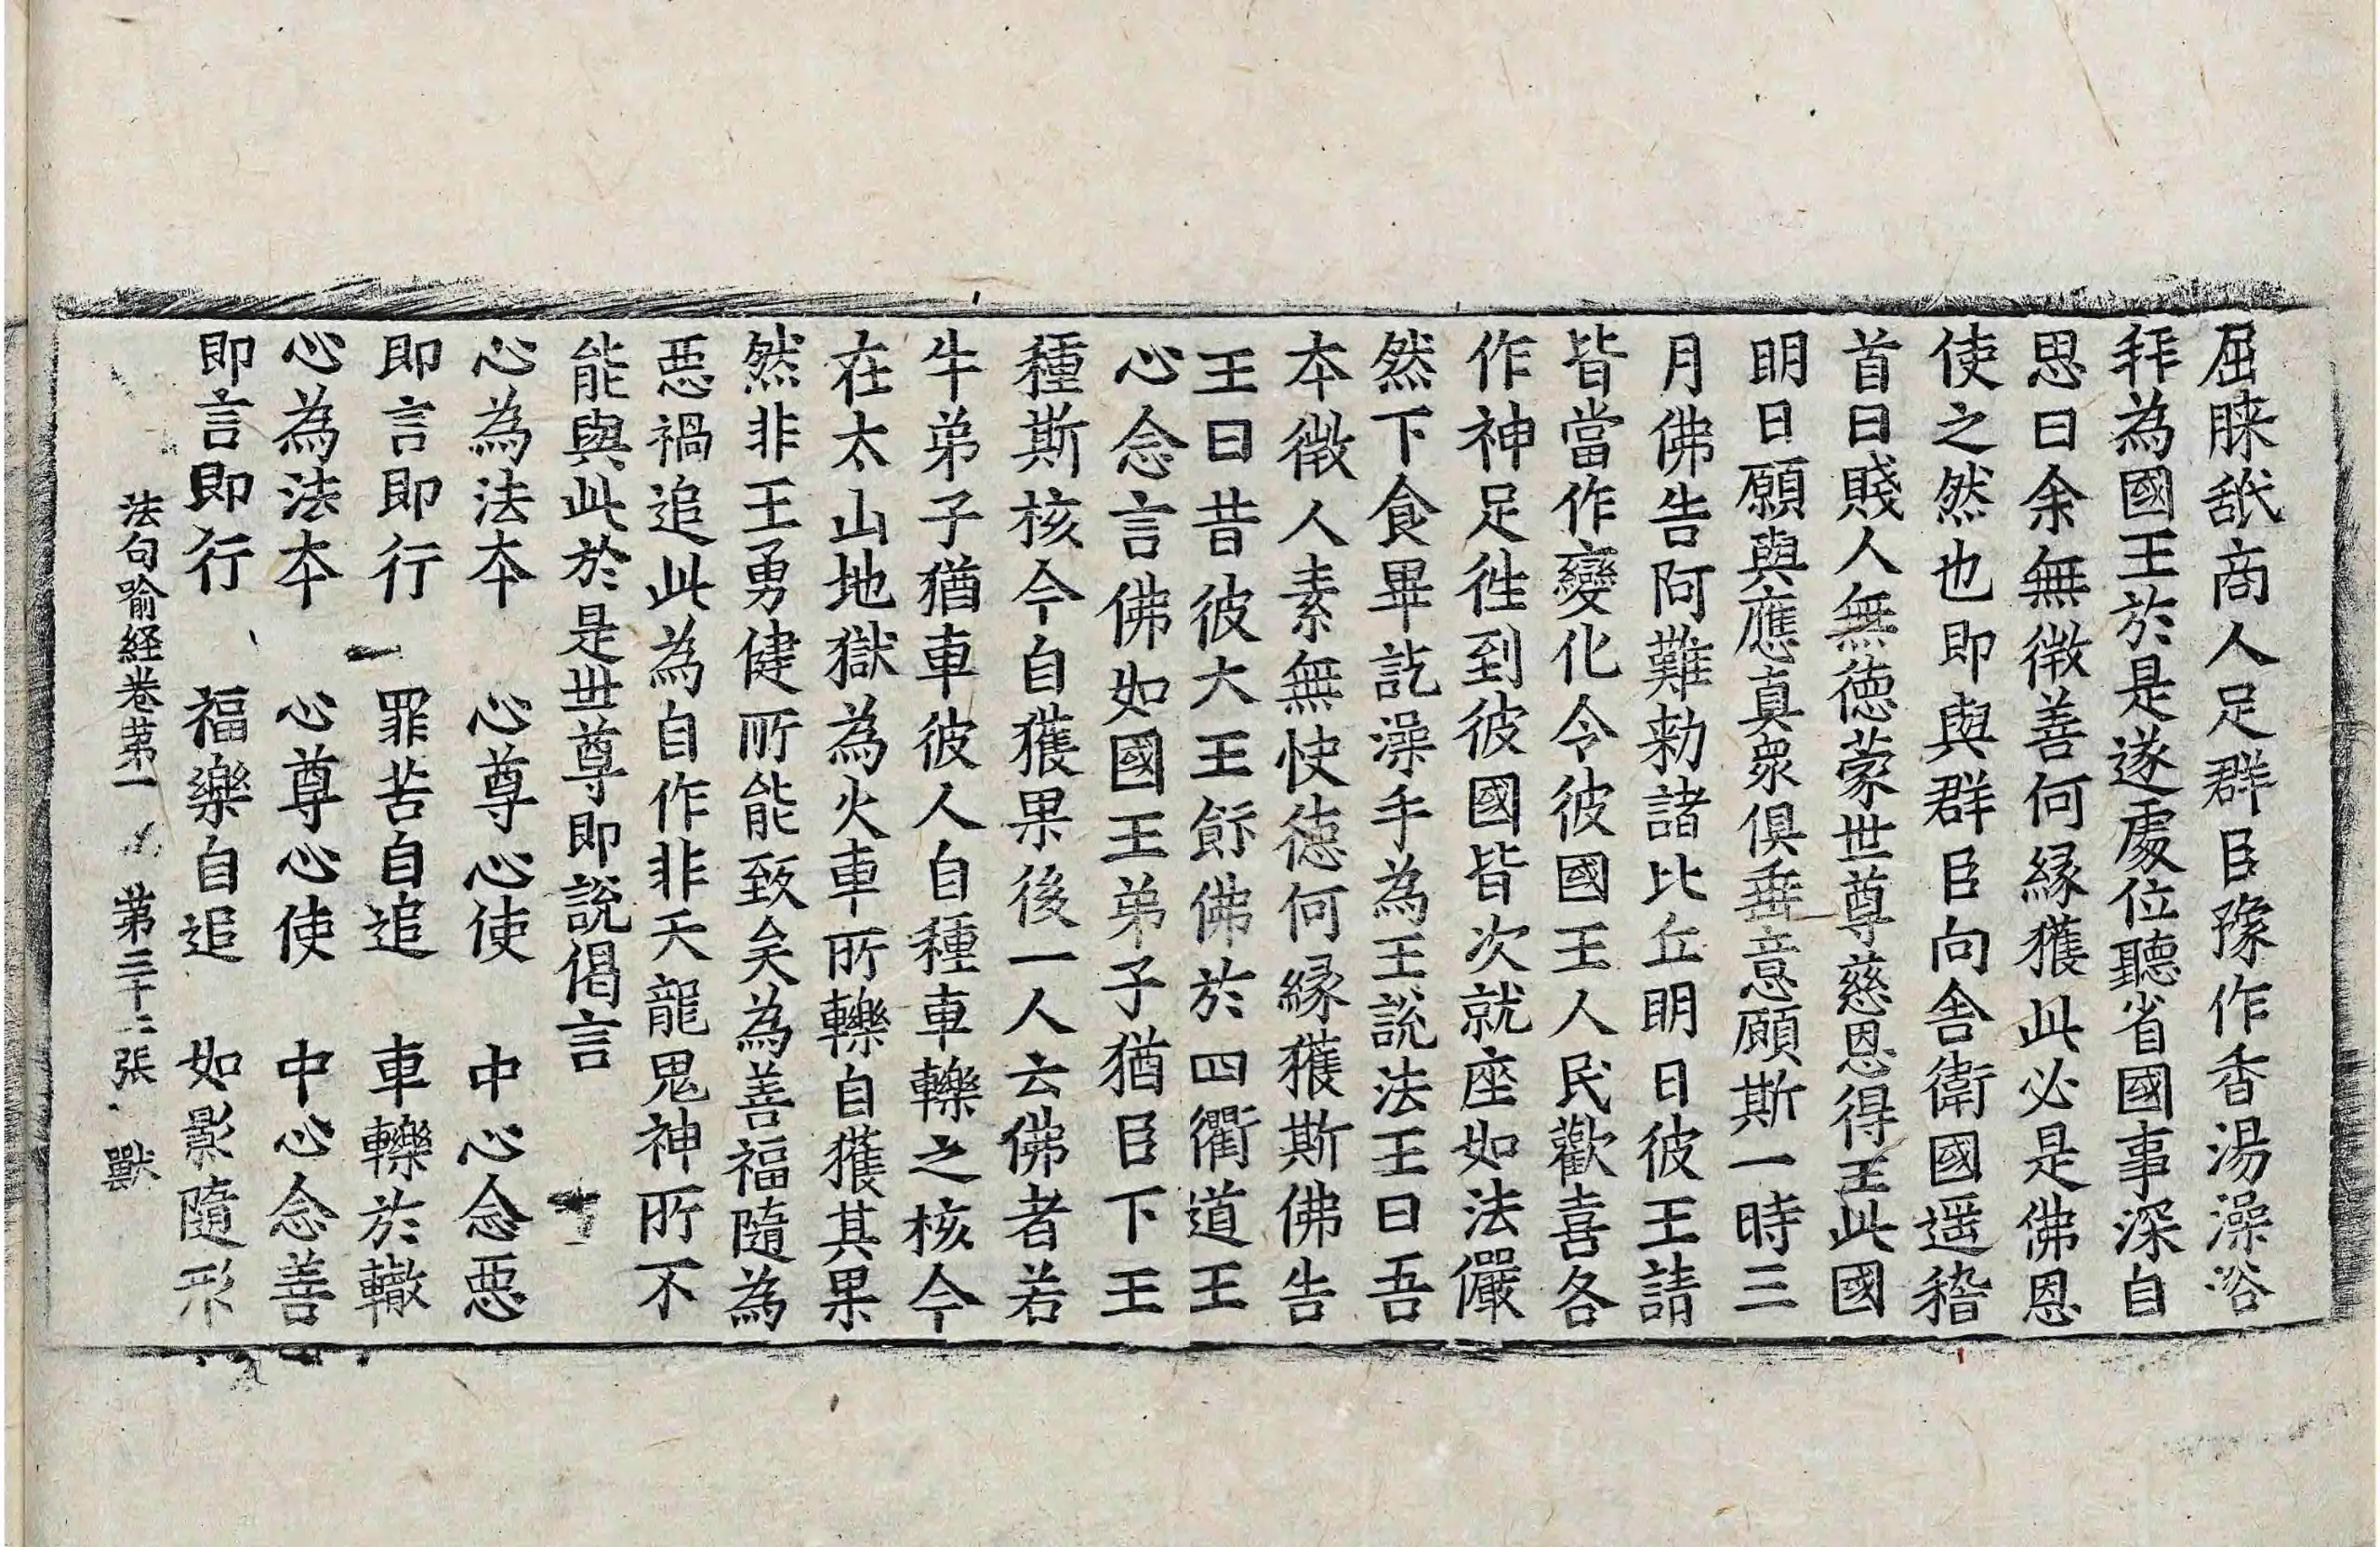 屈膝舐商人足群臣豫作香湯澡浴
拜為國王於是遂處位聽省國事深自
思曰余無徴善何縁獲此必是佛恩
使之然也即與群臣向舍衛國遥稽
首曰賤人無德蒙世尊慈恩得王此國
明日願與應真衆俱垂意顧斯一時三
月佛告阿難勑諸比丘明日彼王請
皆當作變化令彼國王人民歡喜各
作神足徃到彼國皆次就座如法儼
然下食畢訖澡手為王說法王曰吾
本微人素無快德何縁獲斯佛告
王曰昔彼大王飯佛於四衢道王
心念言佛如國王弟子猶臣下王
種斯核今自獲果後一人云佛者若
牛弟子猶車彼人自種車轢之核今
在太山地獄為火車所轢自獲其果
然非王勇健所能致矣為善福隨為
惡禍追此為自作非天龍鬼神所不
能與此於是世尊即說偈言
心為法本　心尊心使　中心念惡
即言即行　罪苦自追　車轢於轍
心為法本　心尊心使　中心念善
即言即行　福樂自追　如影隨形
法句喻経卷苐一　苐三十二張　獸